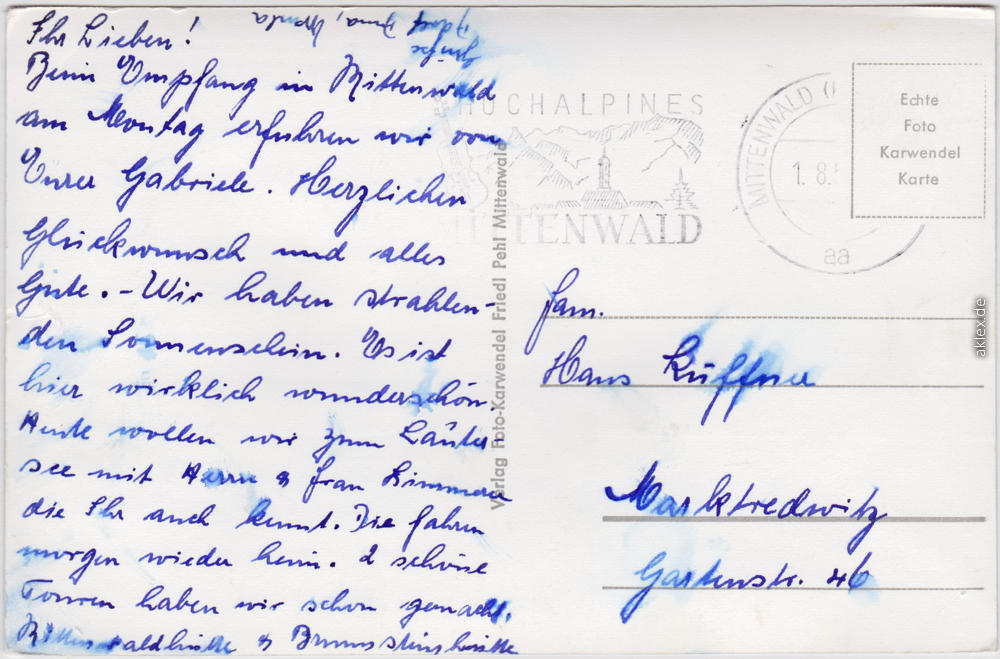 Ihr Lieben!
Beim Empfang in Mittenwald
am Montag erfuhren wir von
Eurer Gabriele. Herzlichen
Glückwunsch und alles
Gute. - Wir haben strahlen-
den Sonnenschein. Es ist
hier wirklich wunderschön.
Heute wollen wir zum Lauter-
see mit Herrn & Frau
die Ihr auch kennt. Die fahren
morgen wieder heim. 2 schöne
Touren haben wir schon gemacht.
Mittenwaldhütte & Brunnsteinhütte
Grüße
Verlag Foto-Karwendel Friedl Pehl Mittenwald
HOCHALPINES
MITTENWALD
MITTENWALD (
1.8.
aa
Echte
Foto
Karwendel
Karte
Fam.
Hans Küffner
Marktredwitz
Gartenstr. 46
aklex.de